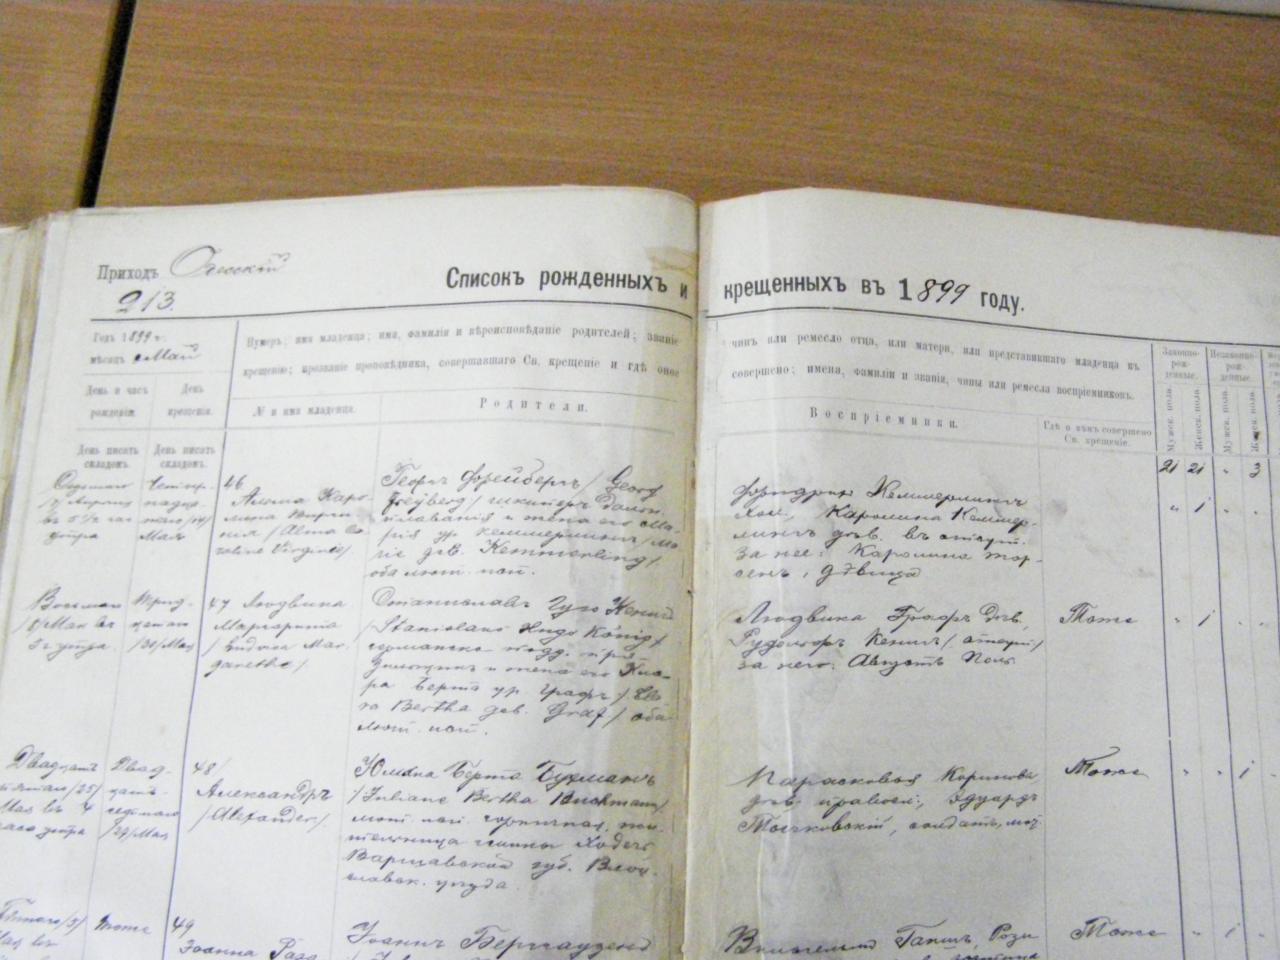 Приходъ Одесскій
213.
Списокъ рожденныхъ и крещенныхъ въ 1899 году.
Годъ 1899 г.
мѣсяцъ Май
Нумеръ; имя младенца; имя, фамилія и вѣроисповѣданіе родителей; званіе
чинъ или ремесло отца, или матери, или представившаго младенца къ
крещенію; прозваніе проповѣдника, совершавшаго Св. крещеніе и гдѣ оное
совершено; имена, фамиліи и званія, чины или ремесла воспріемниковъ.
Законно-
рож-
денные.
Незаконно-
рож-
денные.
День и часъ
рожденія.
День
крещенія.
№ и имя младенца.
Родители.
Воспріемники.
Гдѣ и кѣмъ совершено
Св. крещеніе.
Мужск. пола.
Женск. пола.
Мужск. пола.
Женск. пола.
День писать
складомъ.
День писать
складомъ.
21 21 " 3
въ 5 1/2 час
утра
Четыр-
надца-
таго /14/
Мая
46
Алма Каро-
лина Вирги-
нія /Alma Ca-
roline Virginie/
Георгъ Фрейбергъ /Georg
Freyberg/ шкиперъ дальн.
плаванія и жена его Ма-
рія ур. Кеммерлингъ /Ma-
rie geb. Kemmerling/
оба лют. исп.
Кеммерлингъ
Каролина Кеммер-
лингъ дѣв. въ отсут.
за нее: Каролина
дѣвица
" 1 " "
Восьмаго
/8/ Мая въ
утра
Трид-
цатаго
/30/ Мая
47 Людвика
Маргарита
/Ludvica Mar-
garetha/
Станиславъ Гуго Кенигъ
/Stanislaus Hugo König/
германско подд.
и жена его Кла-
ра Берта ур. Графъ /Cla-
ra Bertha geb. Graf/ оба
лют. исп.
Людвика Графъ дѣв.
Рудольфъ Кенигъ /отсут./
за него: Августъ
Тоже
" 1 " "
Двадцать
пятаго /25/
Мая въ 4
часа утра
Двад-
цать
седьмаго
Мая
48/
Александръ
/Alexander/.
Юліана Берта Бухманъ
/Juliane Bertha Buchmann/
лют. исп. горничная, жи-
тельница гмины Ходечъ
Варшавской губ. Влоц-
лавск. уѣзда.
Парасковья
дѣв. правосл., Эдуардъ
солдатъ,
Тоже
" " 1 "
Пятаго /5/
Мая въ
тоже
49
Іоанна
Іоаннъ
Вильгельмъ
Тоже
" 1 "